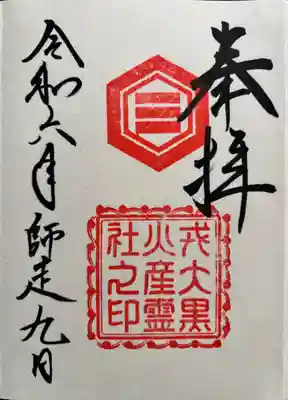 奉拝
戎大黒
火産霊
社之印
令和六年師走九日